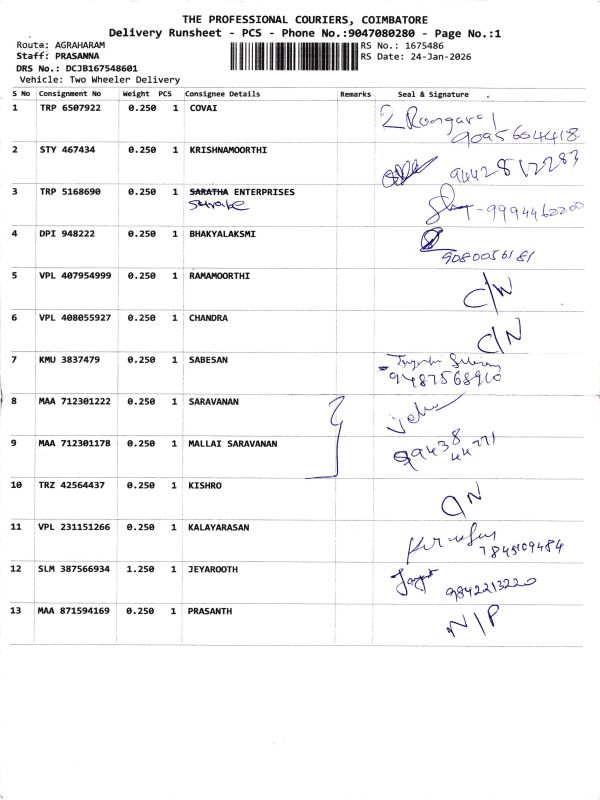 THE PROFESSIONAL COURIERS, COIMBATORE
Delivery Runsheet - PCS - Phone No.:9047080280 - Page No.:1
Route: AGRAHARAM RS No.: 1675486
Staff: PRASANNA RS Date: 24-Jan-2026
DRS No.: DCJB167548601
Vehicle: Two Wheeler Delivery
S No Consignment No Weight PCS Consignee Details Remarks Seal & Signature
1 TRP 6507922 0.250 1 COVAI
9095604418
2 STY 467434 0.250 1 KRISHNAMOORTHI 9442812283
3 TRP 5168690 0.250 1 SARATHA ENTERPRISES
9994462200
4 DPI 948222 0.250 1 BHAKYALAKSMI
9080056181
5 VPL 407954999 0.250 1 RAMAMOORTHI C/N
6 VPL 408055927 0.250 1 CHANDRA C/N
7 KMU 3837479 0.250 1 SABESAN
9487568960
8 MAA 712301222 0.250 1 SARAVANAN
9 MAA 712301178 0.250 1 MALLAI SARAVANAN 99438
44771
10 TRZ 42564437 0.250 1 KISHRO
11 VPL 231151266 0.250 1 KALAYARASAN
7845109484
12 SLM 387566934 1.250 1 JEYAROOTH
9842213220
13 MAA 871594169 0.250 1 PRASANTH N/P